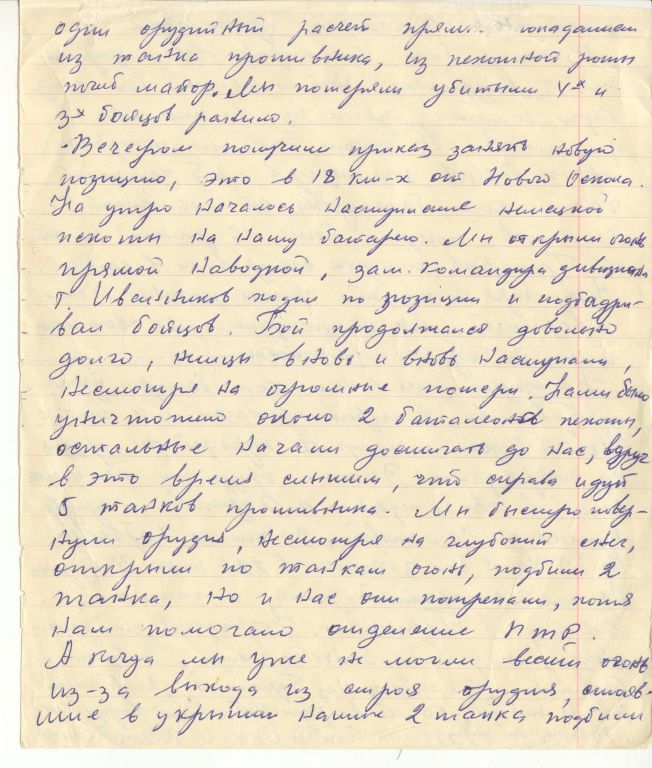 один орудийный расчет прямы. попаданием
из танка противника, из пехотной роты
погиб майор. Мы потеряли убитыми 4х и
3х бойцов ранило.
-Вечером получили приказ занять новую
позицию, это в 18 км-х от Нового Оскола.
На утро началось наступление немецкой
пехоты на нашу батарею. Мы открыли огонь
прямой наводкой, зам. командира дивизиона
т. Иванников ходил по позиции и подбадри-
вал бойцов. Бой продолжался довольно
долго, немцы вновь и вновь наступали,
несмотря на огромные потери. Нами было
уничтожено около 2 баталеонов пехоты,
остальные начали достигать до нас, вдруг
в это время слышим, что справа идут
5 танков противника. Мы быстро повер-
нули орудия, несмотря на глубокий снег,
открыли по танкам огонь, подбили 2
танка, но и нас они потрепали, хотя
нам помогало отделение ПТР.
А когда мы уже не могли вести огонь
из-за выхода из строя орудия, стояв-
шие в укрытии наши 2 танка подбили